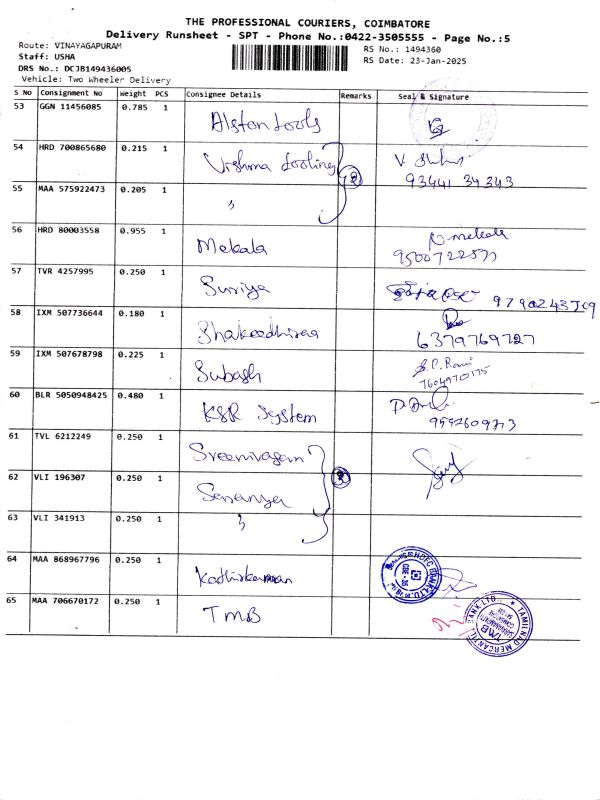 THE PROFESSIONAL COURIERS, COIMBATORE
Delivery Runsheet - SPT - Phone No.:0422-3505555 - Page No.:5
Route: VINAYAGAPURAM
RS No.: 1494360
Staff: USHA
RS Date: 23-Jan-2025
DRS No.: DCJB149436005
Vehicle: Two Wheeler Delivery
S No Consignment No Weight PCS Consignee Details Remarks Seal & Signature
53 GGN 11456085 0.785 1 Alston tools
54 HRD 700865680 0.215 1 Vishma tooling 2
93441 34343
55 MAA 575922473 0.205 1 "
56 HRD 80003558 0.955 1 Mekala mekala
57 TVR 4257995 0.250 1 Suriya
58 IXM 507736644 0.180 1
6379769727
59 IXM 507678798 0.225 1 Subash
60 BLR 5050948425 0.480 1 KSR System
61 TVL 6212249 0.250 1
62 VLI 196307 0.250 1
63 VLI 341913 0.250 1 "
64 MAA 868967796 0.250 1 HDFC BANK LTD.
65 MAA 706670172 0.250 1 TMB
TAMILNAD MERCANTILE BANK LTD.
TMB